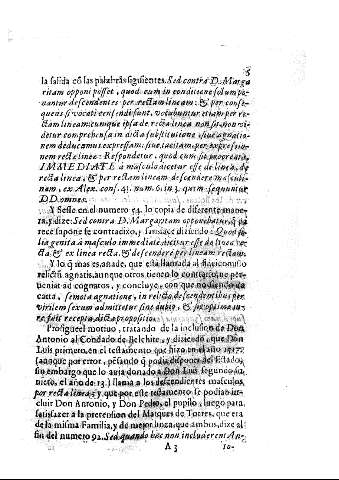 5
la salida cõ las palabras siguientes. Sed contra D. Marga
ritam opponi posset, quod cum in conditione solum po-
nantur descendentes per rectam lineam: & per conse-
quens si vocati censendi sunt, vocabuntur etiam per re-
ctam lineam: cumque ipsa de recta linea non sit, non vi-
detur comprehensa in dicta substitutione, siue agnatio-
nem deducamus expressam, siue tacitam, per expressio-
nem rectæ lineæ: Respondetur, quod cum sit procreata,
IMMEDIATE à masculo dicitur esse de linea, de
recta linea, & per rectam lineam descendere masculi-
nam, ex Alex. cons. 41. num. 6. in 3. quem sequuntur
DD. omnes.
Y Sesse en el numero 94. lo copia de diferente mane-
ra, y dize: Sed contra D. Margaritam opponebatur, q̃ pa
rece supone se contradixo, y satisface diziendo: Quod fi-
lia genita à masculo immediatè dicitur esse de linea re-
cta, & ex linea recta, & descendere per lineam rectam.
Y lo q̃ mas es, añade, que está llamada al fideicomisso
relictũ agnatis, aunque otros tienen lo contrario que per-
veniat ad cognatos, y concluye, con que no siendo de
casta, semota agnatione, in relicto descendentibus per
virilem sexum admittetur sine dubio, & proposito iu-
re fuit recepta dicta propositio.
Prosigue el motiuo, tratando de la inclusion de Don
Antonio al Condado de Belchite, y diziendo, que Don
Luis primero, en el testamento que hizo en el año 1517.
(aunque por error, pẽsando q̃ podia disponer del Estado,
sin embargo que lo auia donado a Don Luis segundo su
nieto, el año de 13.) llama a los descendientes masculos,
por recta linea; y que por este testamento se podian in-
cluir Don Antonio, y Don Pedro, el pupilo, luego para
satisfazer a la pretension del Marques de Torres, que era
de la misma Familia, y de mejor linea, que ambos, dize al
fin del numero 92. Sed quando hoc non includerent An-
A 3
to-